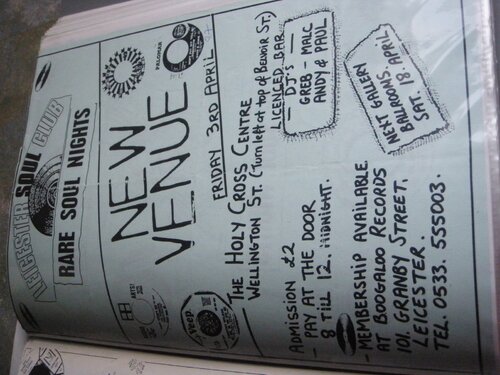 LEICESTER SOUL CLUB
RARE SOUL NIGHTS
NEW
VENUE
FRIDAY 3RD APRIL
THE HOLY CROSS CENTRE
WELLINGTON ST. (Turn left at top of Belvoir St.)
LICENCED BAR
- DJ's -
GREB - MALC
ANDY & PAUL
ADMISSION £2
- PAY AT THE DOOR
8 TILL 12. MIDNIGHT.
NEXT GALLERY
BALLROOMS.
SAT. 18 APRIL
- MEMBERSHIP AVAILABLE
AT BOOGALOO RECORDS
101, GRANBY STREET.
LEICESTER.
TEL. 0533. 555003.
Veep